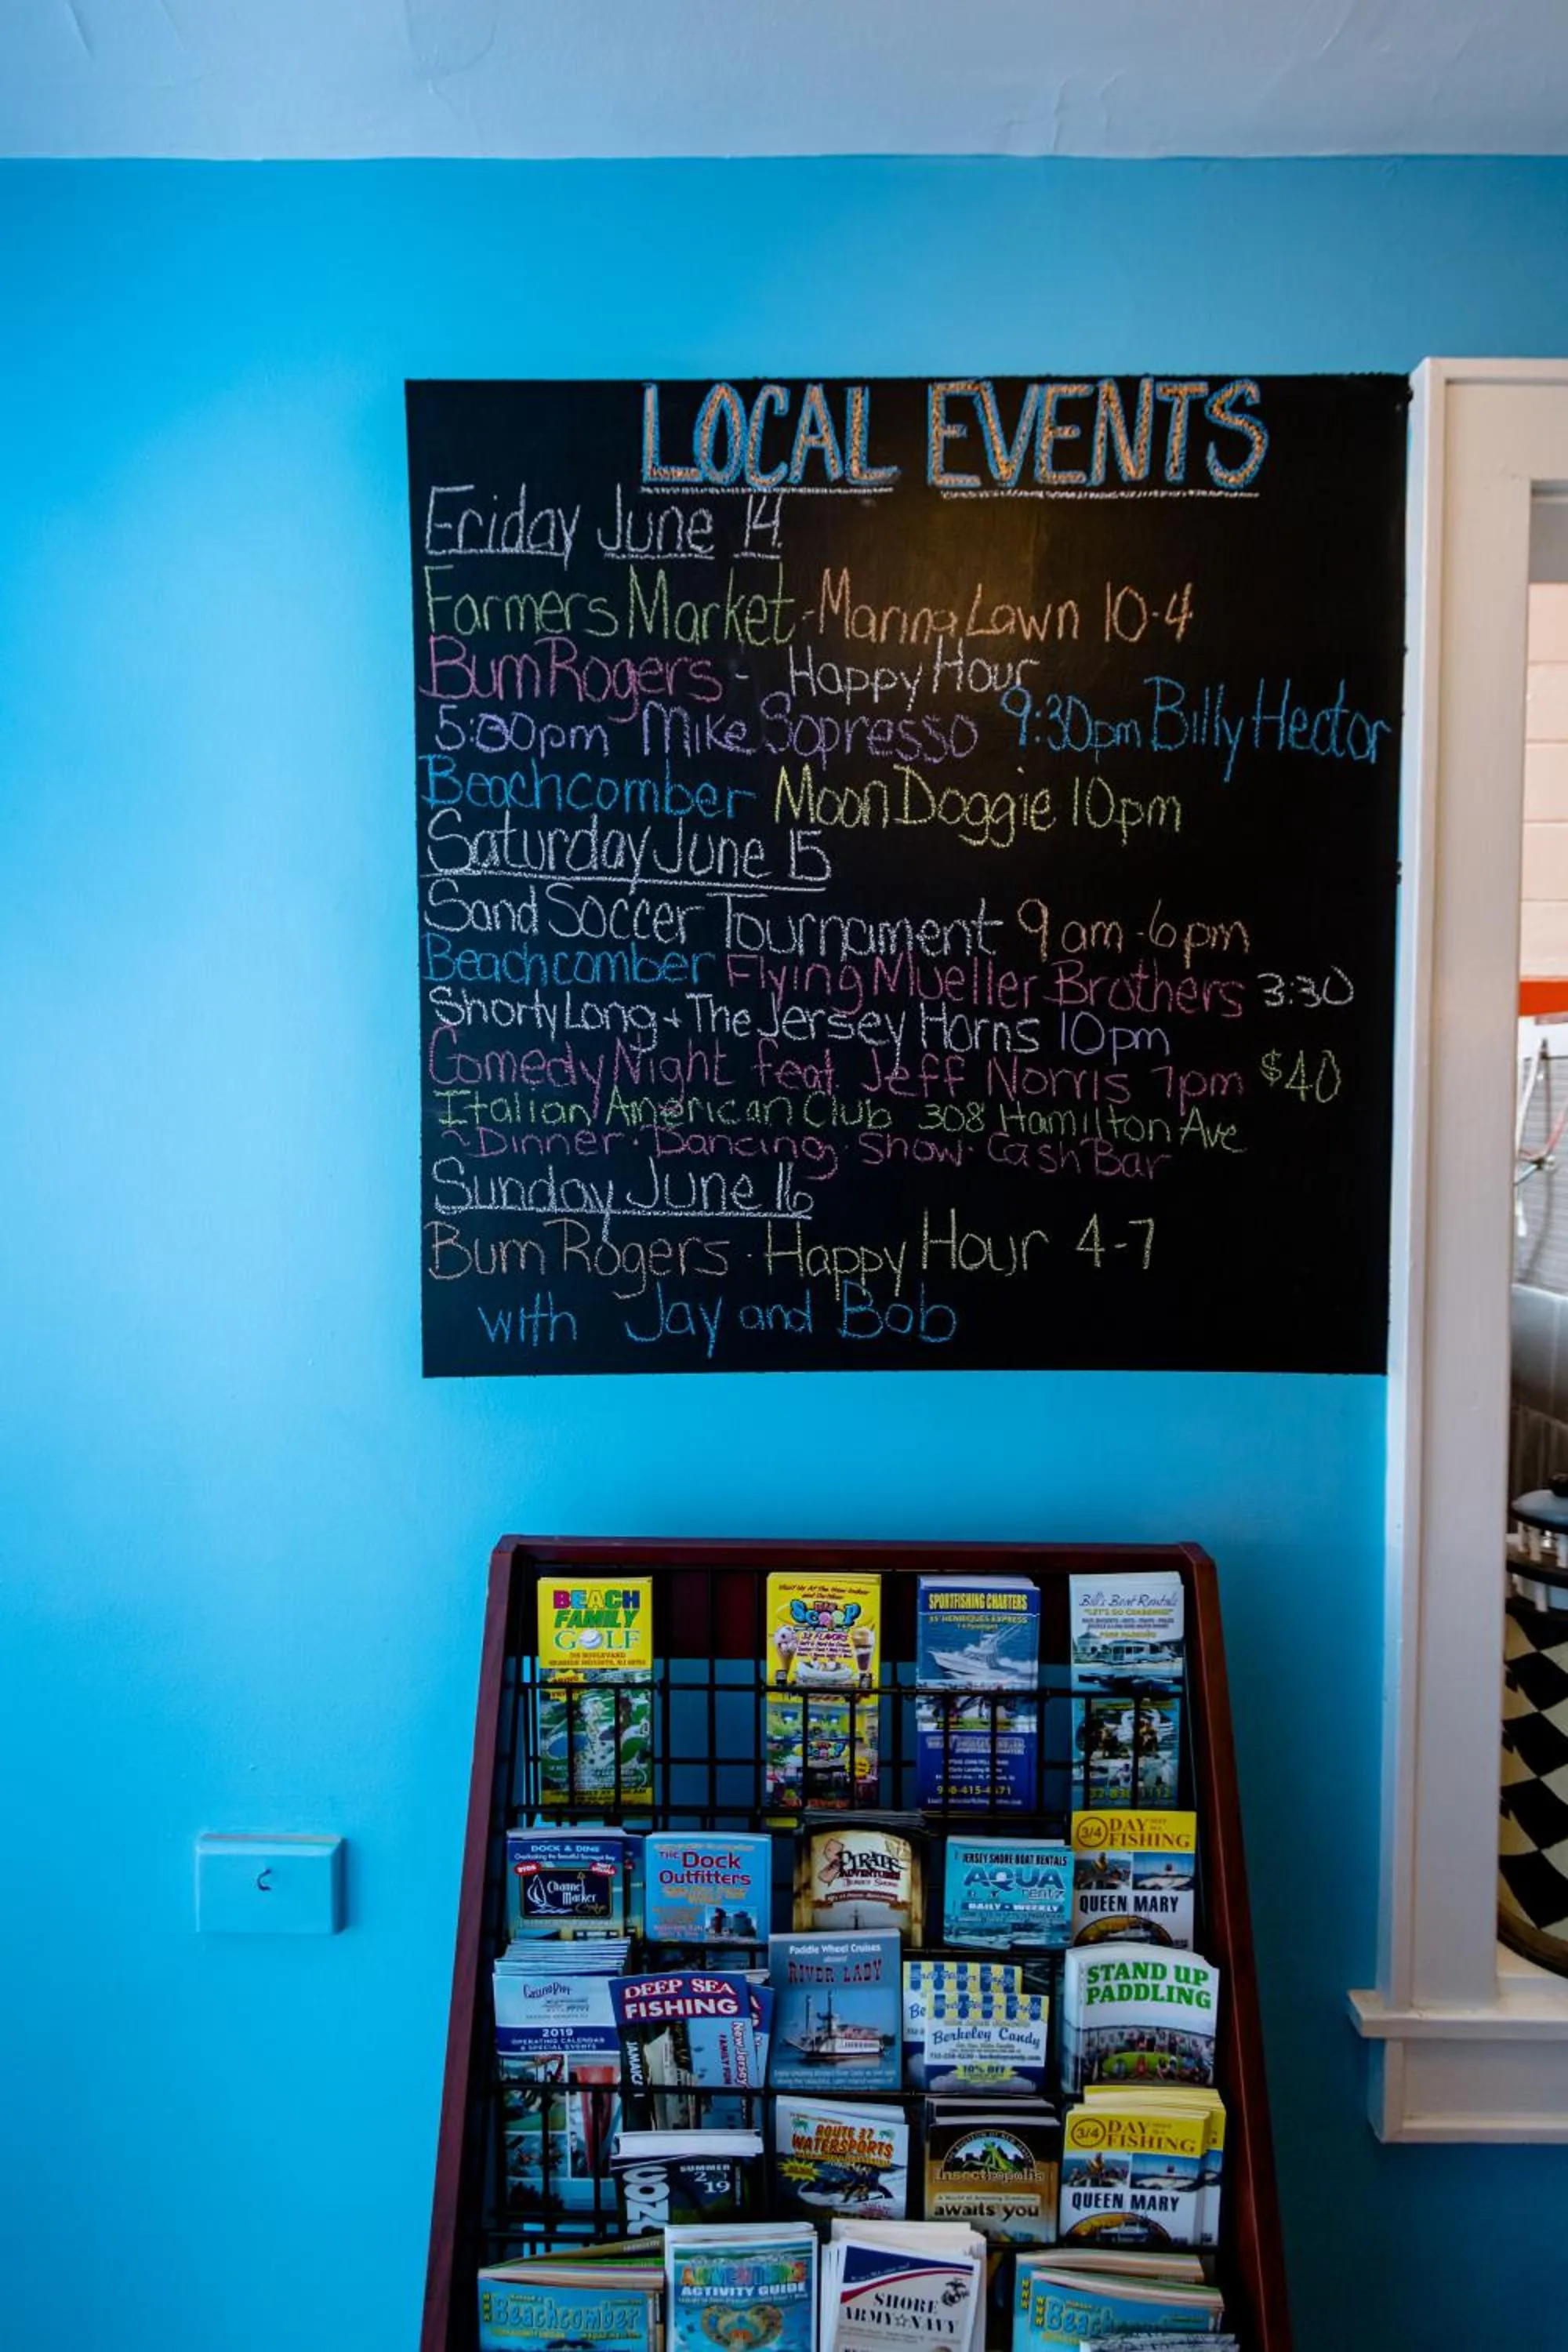 LOCAL EVENTS
Friday June 14
Farmers Market - Marina Lawn 10-4
Bum Rogers - Happy Hour
5:30pm Mike Sopresso 9:30pm Billy Hector
Beachcomber Moon Doggie 10pm
Saturday June 15
Sand Soccer Tournament 9am-6pm
Beachcomber Flying Mueller Brothers 3:30
Shorty Long + The Jersey Horns 10pm
Comedy Night feat. Jeff Norris 7pm $40
Italian American Club 308 Hamilton Ave
~Dinner · Dancing · Show · Cash Bar
Sunday June 16
Bum Rogers - Happy Hour 4-7
with Jay and Bob
BEACH
FAMILY
GOLF
SCOOP
32 FLAVORS
SPORTFISHING CHARTERS
35' HENRIQUES EXPRESS
Bill's Boat Rentals
"LET'S GO CRABBING"
DOCK & DINE
Channel
Marker
THE Dock
Outfitters
PIRATE
ADVENTURES
JERSEY SHORE
JERSEY SHORE BOAT RENTALS
AQUA
DAILY - WEEKLY
3/4 DAY
FISHING
QUEEN MARY
Casino Pier
2019
OPERATING CALENDAR
& SPECIAL EVENTS
DEEP SEA
FISHING
JAMAICA
New Jersey
FAMILY FUN
Paddle Wheel Cruises
aboard
RIVER LADY
Berkeley Candy
10% Off
STAND UP
PADDLING
SUMMER
ROUTE 37
WATERSPORTS
Insectropolis
awaits you
3/4 DAY
FISHING
QUEEN MARY
Beachcomber
ACTIVITY GUIDE
SHORE
ARMY☆NAVY
Beachcomber